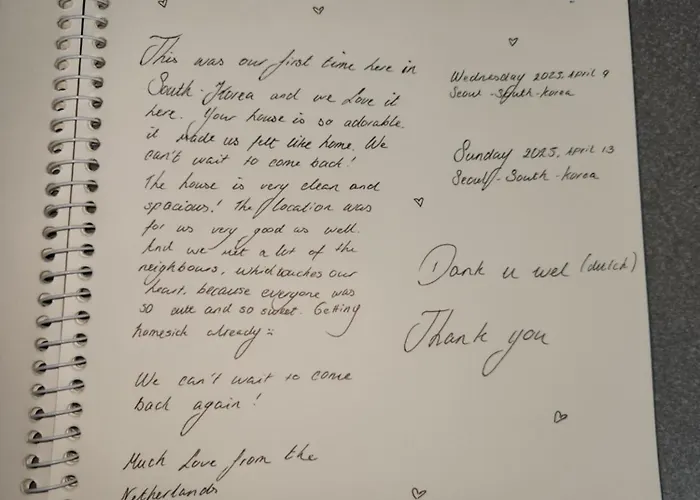 This was our first time here in
South-Korea and we love it
here. Your house is so adorable.
it made us felt like home. We
can't wait to come back!
The house is very clean and
spacious! The location was
for us very good as well.
And we met a lot of the
neighbours, which touches our
heart, because everyone was
so cute and so sweet. Getting
homesick already :
We can't wait to come
back again!
Much Love from the
Netherlands
Wednesday 2025, April 9
Seoul - South-Korea
Sunday 2025, April 13
Seoul - South-Korea
Dank u wel (dutch)
Thank you